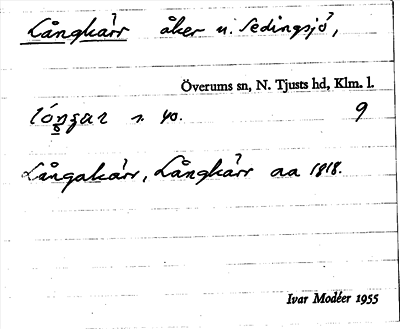 Långkärr åker u. Sedingsjö,
Överums sn, N. Tjusts hd, Klm. l.
n. yo. 9
Långakärr, Långkärr aa 1818.
Ivar Modéer 1955